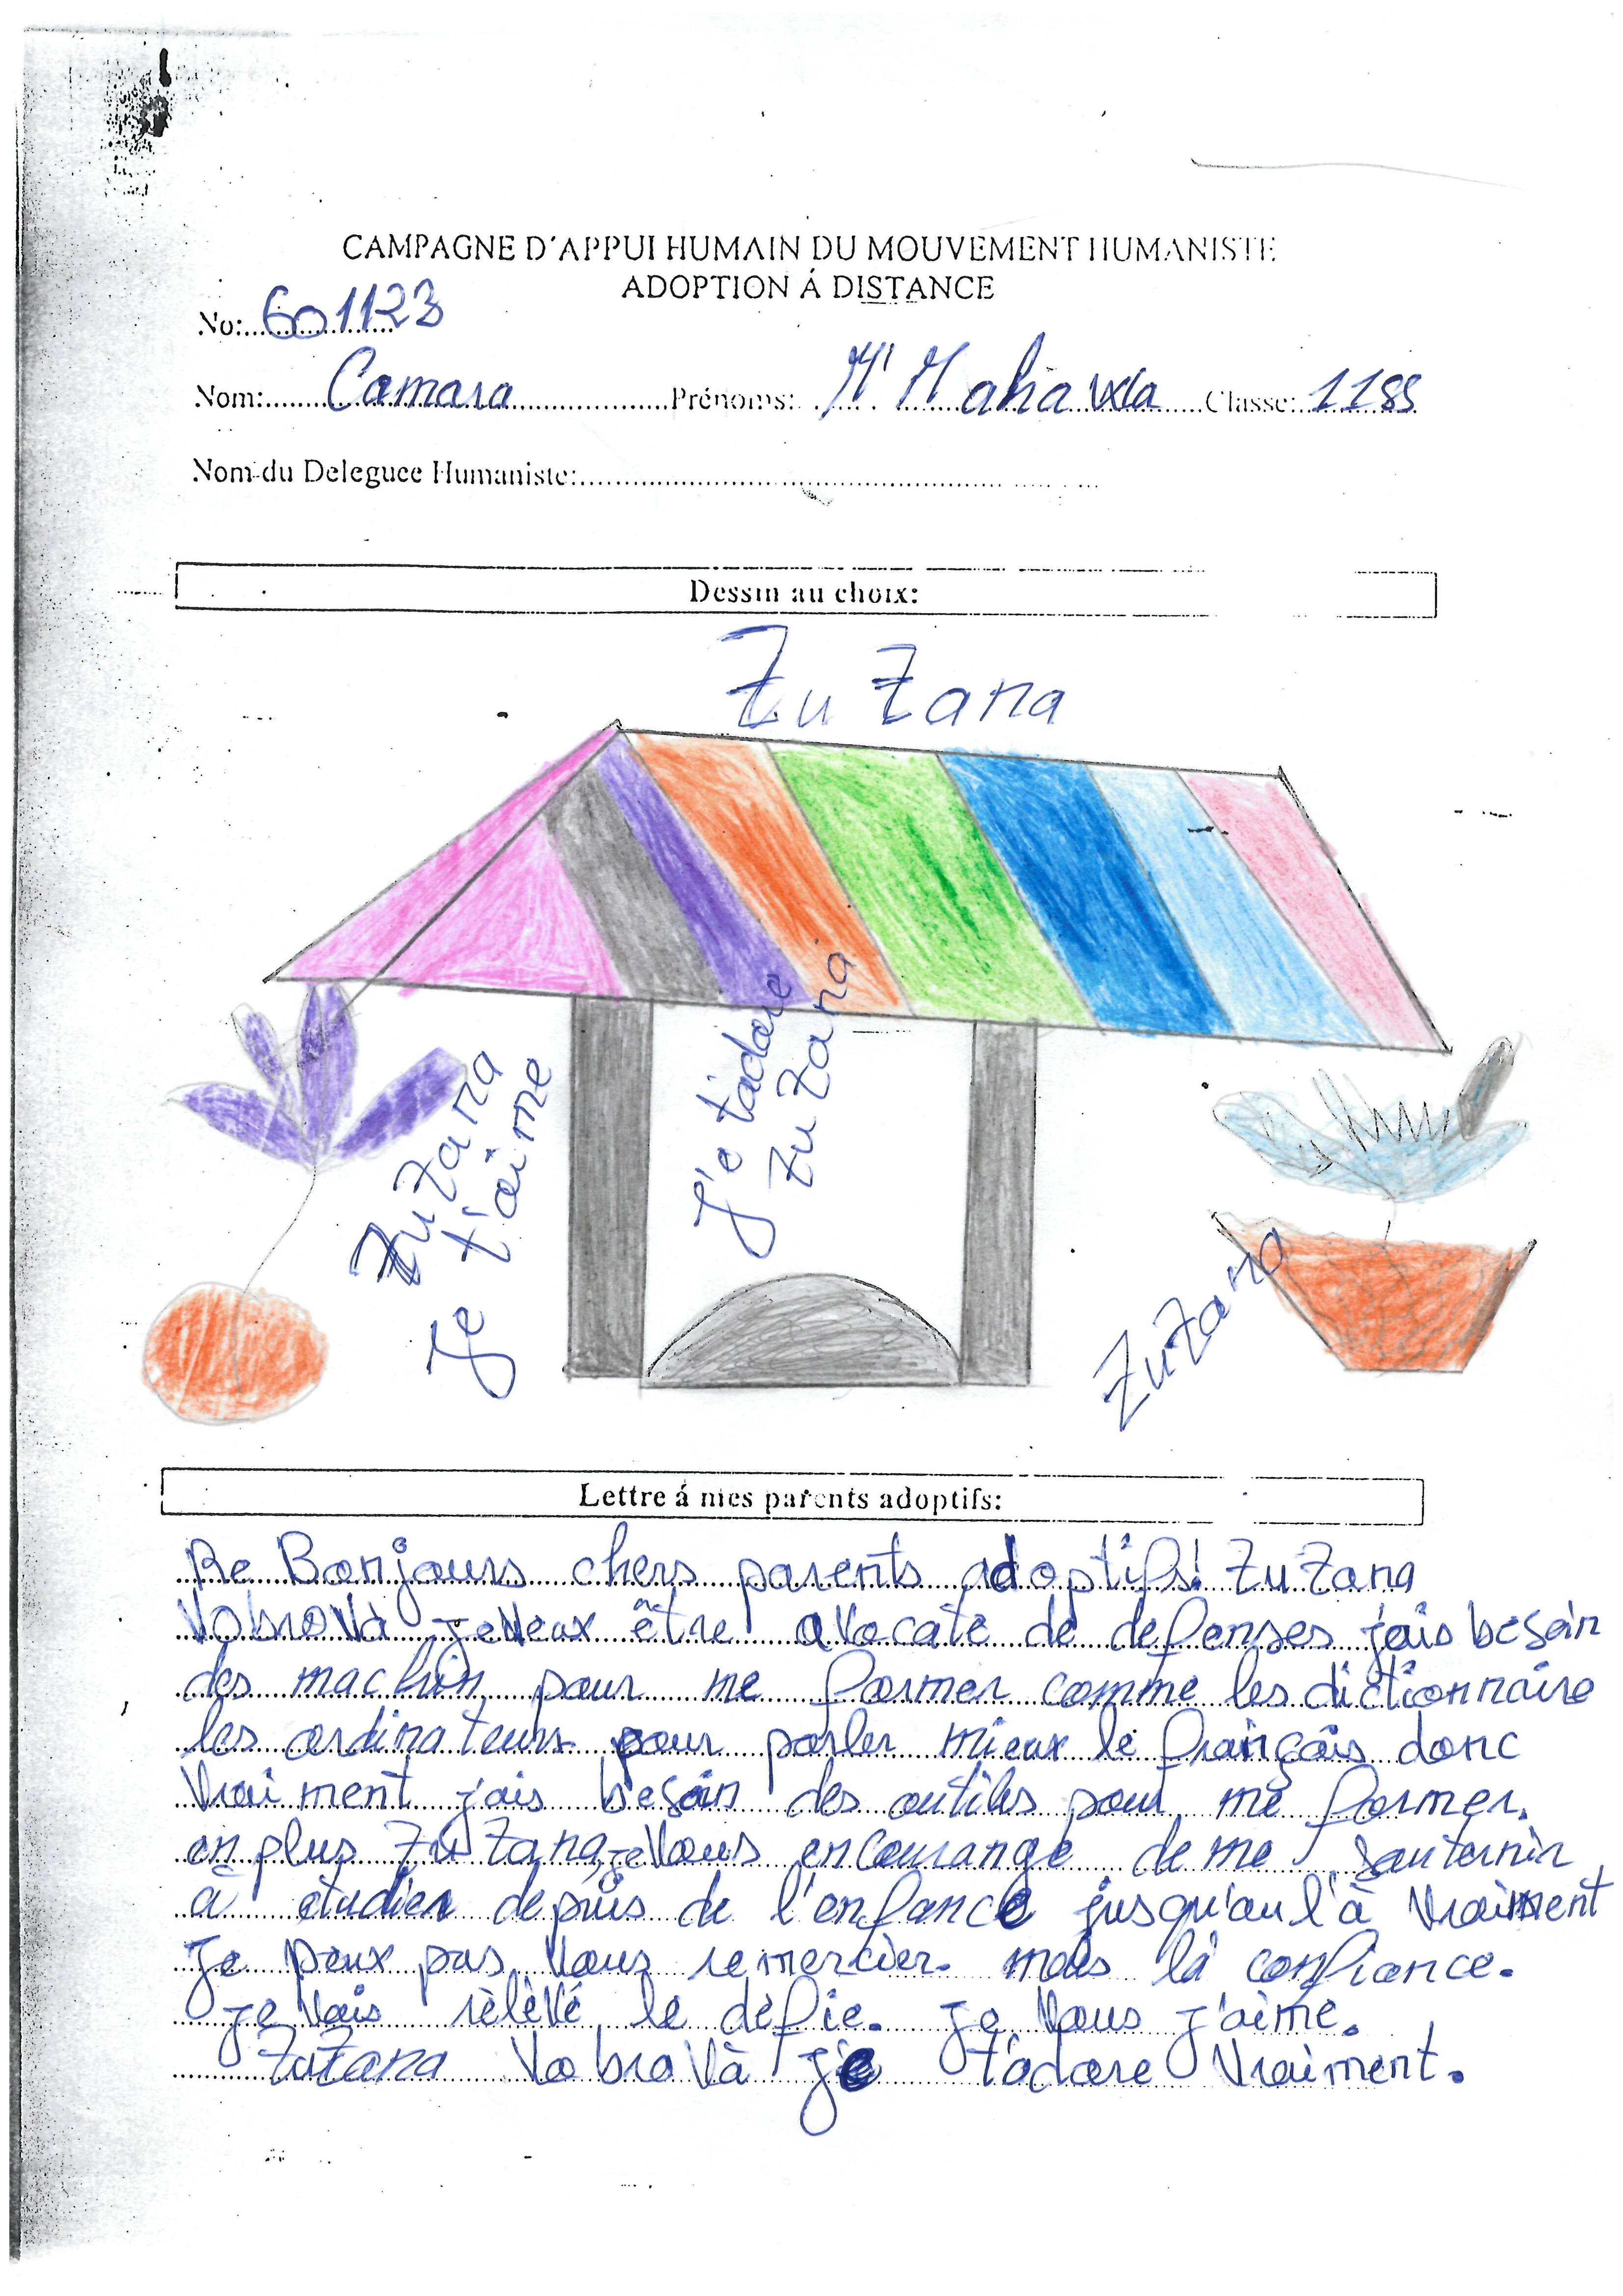 CAMPAGNE D'APPUI HUMAIN DU MOUVEMENT HUMANISTE
ADOPTION Á DISTANCE
No: 601123
Nom: Camara Prénoms: M'Mahawa Classe: 11SS
Nom du Deleguee Humaniste:
Dessin au choix:
ZuZana
ZuZana
Je t'aime
J'e t'adore
ZuZana
ZuZana
Lettre á mes parents adoptifs:
Re Bonjours chers parents adoptifs! ZuZana
Vobrovà je veux être avocate de defenses j'ais besoin
des machin pour me former comme les dictionnaire
les ordinateurs pour parler mieux le français donc
vraiment j'ais besoin des outiles pour me former.
en plus ZuZana, je vous encourange de me souternir
à étudier depuis de l'enfance jusqu'au l'à vraiment
Je peux pas vous remercier. mais la confiance.
je vais rélévé le defie. Je vous j'aime.
ZuZana Vobrovà j'e t'adore vraiment.